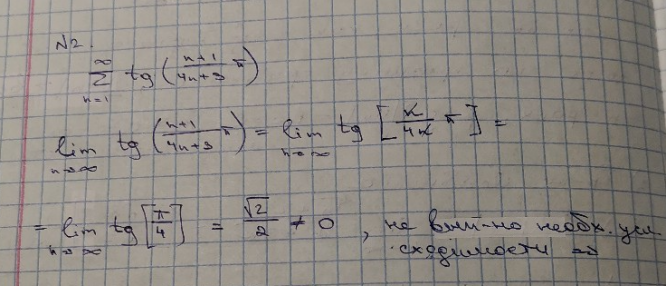 №2.
∞
∑ tg (n+1/4n+3 π)
n=1
lim tg (n+1/4n+3 π) = lim tg [n/4n π] =
n→∞ n→∞
= lim tg [π/4] = √2/2 ≠ 0 , не вып-но необх. усл.
n→∞ сходимости ⇒